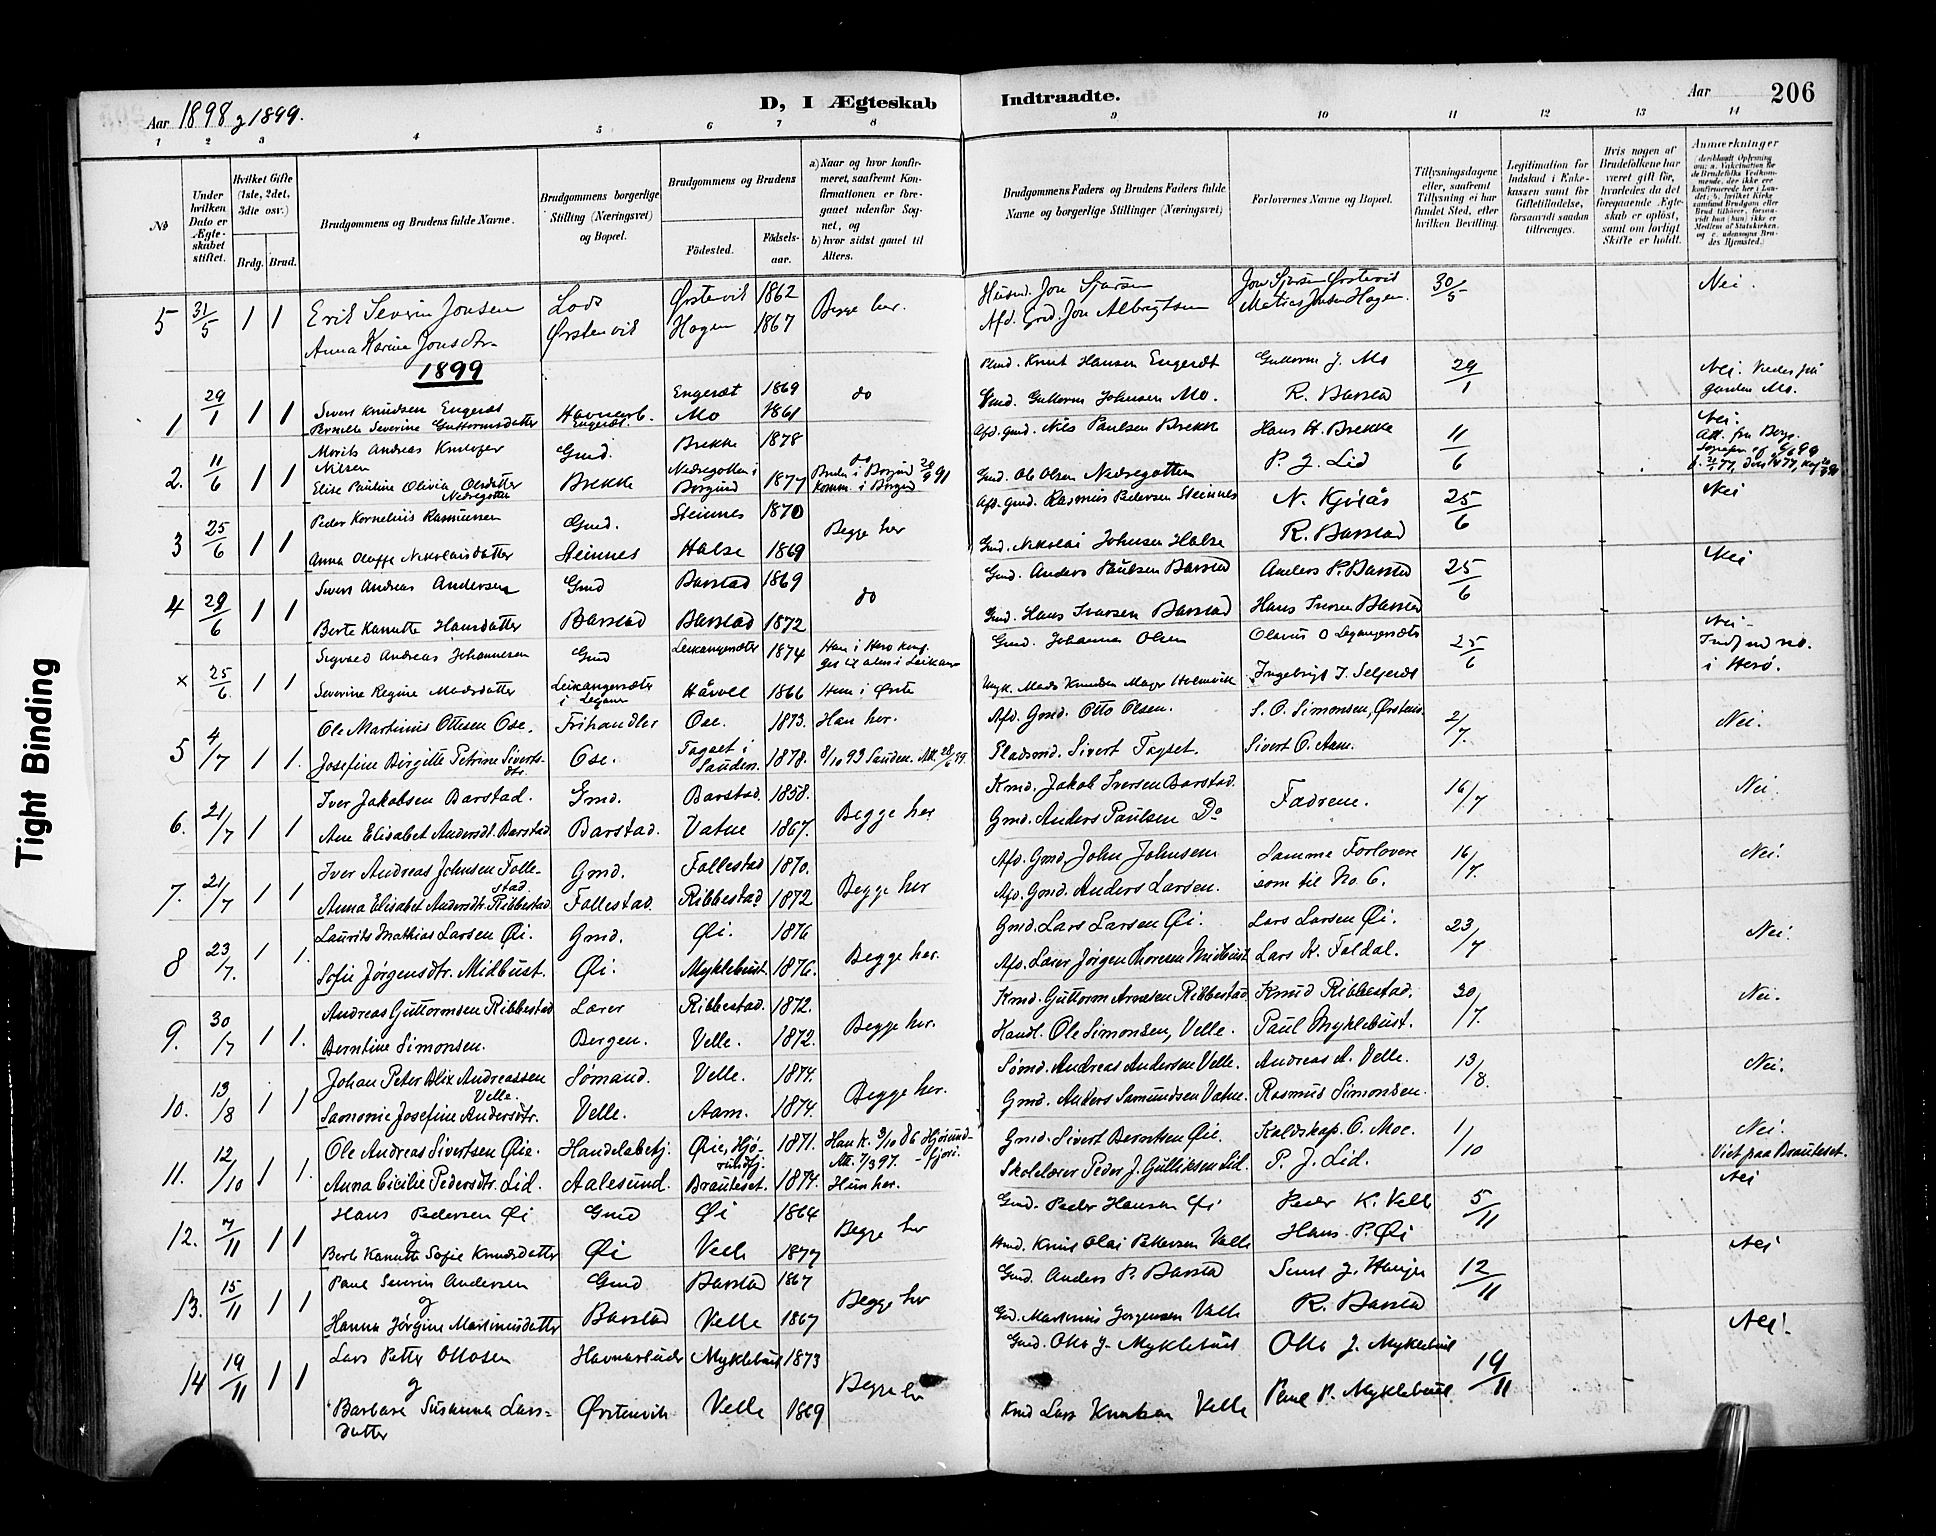 Aar 1898 og 1899.
D, I Ægteskab Indtraadte.
Aar 206
1 2 3 4 5 6 7 8 9 10 11 12 13 14
No
Under hvilken Dato er Ægteskabet stiftet.
Hvilket Gifte (1ste, 2det, 3die osv.)
Brdg. Brud.
Brudgommens og Brudens fulde Navne.
Brudgommens borgerlige Stilling (Næringsvei) og Bopæl.
Brudgommens og Brudens
Födested. Födsels-aar.
a) Naar og hvor konfirmeret, saafremt Konfirmationen er foregaaet udenfor Sognet, og
b) hvor sidst gaaet til Alters.
Brudgommens Faders og Brudens Faders fulde Navne og borgerlige Stillinger (Næringsvei)
Forlovernes Navne og Bopæl.
Tillysningsdagene eller, saafremt Tillysning ei har fundet Sted, efter hvilken Bevilling.
Legitimation for Indskud i Enkekassen samt for Giftetilladelse, forsaavidt saadan tiltrænges.
Hvis nogen af Brudefolkene har været gift før, hvorledes da det foregaaende Ægteskab er oplöst, samt om lovligt Skifte er holdt.
Anmærkninger
5 31/5 1 1 Erik Severin Jonsen Lods Ørstevik 1862 Begge her. Husmd. Jon Sjursen Jon Sjursen Ørstevik 30/5 Nei.
Anna Karine Jonsdtr. Ørstenvik Hagen 1867 Afd. Grd. Jon Albregtsen Matias Jonsen Hagen.
1899
1 29/1 1 1 Sivert Knudsen Engeset Havnearb. Engeset 1869 do Knud Hansen Engeset Guttorm J. Mo 29/1 Nei.
Pernille Severine Guttormsdatter Engeset Mo 1861 Gmd. Guttorm Johnsen Mo. R. Barstad garden Mo.
2. 11/6 1 1 Morits Andreas Gmd. Brekke 1878 do Afd. Gmd. Nils Paulsen Brekke Hans H. Brekke 11/6 Nei.
Nilsen
Elise Pauline Olivia Olsdatter Nedregotten Brekke Nedregotten i Borgund 1877 Gmd. Ole Olsen Nedregotten P. J. Lid
3 25/6 1 1 Peder Kornelius Rasmussen Gmd. Steinnes 1870 Begge her Afd. Gmd. Rasmus Pedersen Steinnes N. Kjisås 25/6 Nei
Anna Oluffe Nikolaisdatter Steinnes Halse 1869 Gmd. Nikolai Johnsen Halse R. Barstad
4 29/6 1 1 Sivert Andreas Andersen Gmd Barstad 1869 do Gmd. Anders Paulsen Barstad Anders P. Barstad 25/6 Nei
Berte Kanutte Hansdatter Barstad Barstad 1872 Gmd. Hans Ivarsen Barstad Hans Iversen Barstad
x 25/6 1 1 Sigvald Andreas Johannesen Gmd Leikangersæter 1874 Han i Herø Gmd. Johannes Olsen Olavus O Legangersæter 25/6 Nei
Severine Regine Madsdatter Leikangersæter Håvoll 1866 Hun i Ørste Mads Knudsen Ingebrigt J. Seljeset i Herø.
5 4/7 1 1. Ole Martinus Ottesen Ose. Frihandler Ose. 1873. Han her. Afd. Gmd. Otto Olsen. S. O. Simonsen, Ørstenv. 2/7. Nei.
Josefine Birgitte Petrine Sivertsdtr. Ose. i Sanden. 1878. 8/10 93 Sanden. Att. 28/6 99. Pladsmd. Sivert Sivert O. Aam.
6. 21/7 1 1 Iver Jakobsen Barstad. Gmd. Barstad. 1858. Begge her Kmd. Jakob Iversen Barstad. Fædrene. 16/7 Nei.
Ane Elisabet Andersdt. Barstad Barstad. Vatne 1867. Gmd. Anders Paulsen Do
7. 21/7 1 1 Iver Andreas Johnsen Follestad. Gmd. Follestad 1870. Begge her Afd. Gmd. John Johnsen Samme Forlovere 16/7. Nei.
Anna Elisabet Andersdtr. Ribbestad Follestad. Ribbestad 1872 Afd. Gmd. Anders Larsen. som til No. 6.
8 23/7. 1 1. Laurits Mathias Larsen Øi. Gmd. Øi. 1876 Begge her. Gmd. Lars Larsen Øi. Lars Larsen Øi. 23/7 Nei.
Sofie Jørgensdtr. Midbust. Øi. Myklebust. 1876. Afd. Lærer Jørgen Thoresen Midbust Lars K. Foldal.
9. 30/7 1 1. Andreas Guttormsen Ribbestad Lærer Ribbestad. 1872. Begge her. Kmd. Guttorm Arnesen Ribbestad Knud Ribbestad. 30/7. Nei.
Berntine Simonsen. Bergen. Velle. 1872. Handl. Ole Simonsen, Velle. Paul Myklebust.
10. 13/8 1 1 Johan Peter Blix Andreassen Velle. Sømand. Velle. 1874. Begge her. Sømd. Andreas Andersen Velle. Andreas A. Velle. 13/8. Nei.
Samonie Josefine Andersdtr. Velle. Aam. 1874. Gmd. Anders Samundsen Vatne. Rasmus Simonsen.
11. 12/10 1 1. Ole Andreas Sivertsen Øie. Handelsbetj. Øie, Hjørundfj. 1871. Han k. 3/10 86 Hjørundfjord. Gmd. Sivert Berntsen Øie. Kaldskap. O. Moe. 1/10 Nei.
Anna Cicilie Pedersdtr. Lid. Aalesund. Brauteset. 1874. Att. 7/3 97. Hun her. Skolelærer Peder J. Gulliksen Lid. P. J. Lid. Viet paa Brauteset.
12. 7/11 1 1 Hans Pedersen Øi Gmd Øi 1864 Begge her Gmd. Peder Hansen Øi Peder K. Velle 5/11 Nei
og
Berte Kanutte Sofie Knudsdatter Øi Velle 1877 Knut Olai Pettersen Velle Hans. P. Øi
13. 15/11 1 1 Paul Severin Andersen Gmd Barstad 1867 Begge her Gmd. Anders P. Barstad 12/11 Nei
og
Hanna Jørgine Martinusdatter Barstad Velle 1867 Gmd. Martinus Jørgensen Velle R. Barstad
14 19/11 1 1 Lars Petter Ottosen Myklebust 1873 Begge her Gmd. Otto J. Myklebust Otto J. Myklebust 19/11 Nei.
og
Barbara Susanna Larsdatter Ørstenvik Velle 1869 Kmd Lars Knutsen Velle Paul P. Myklebust
Tight Binding